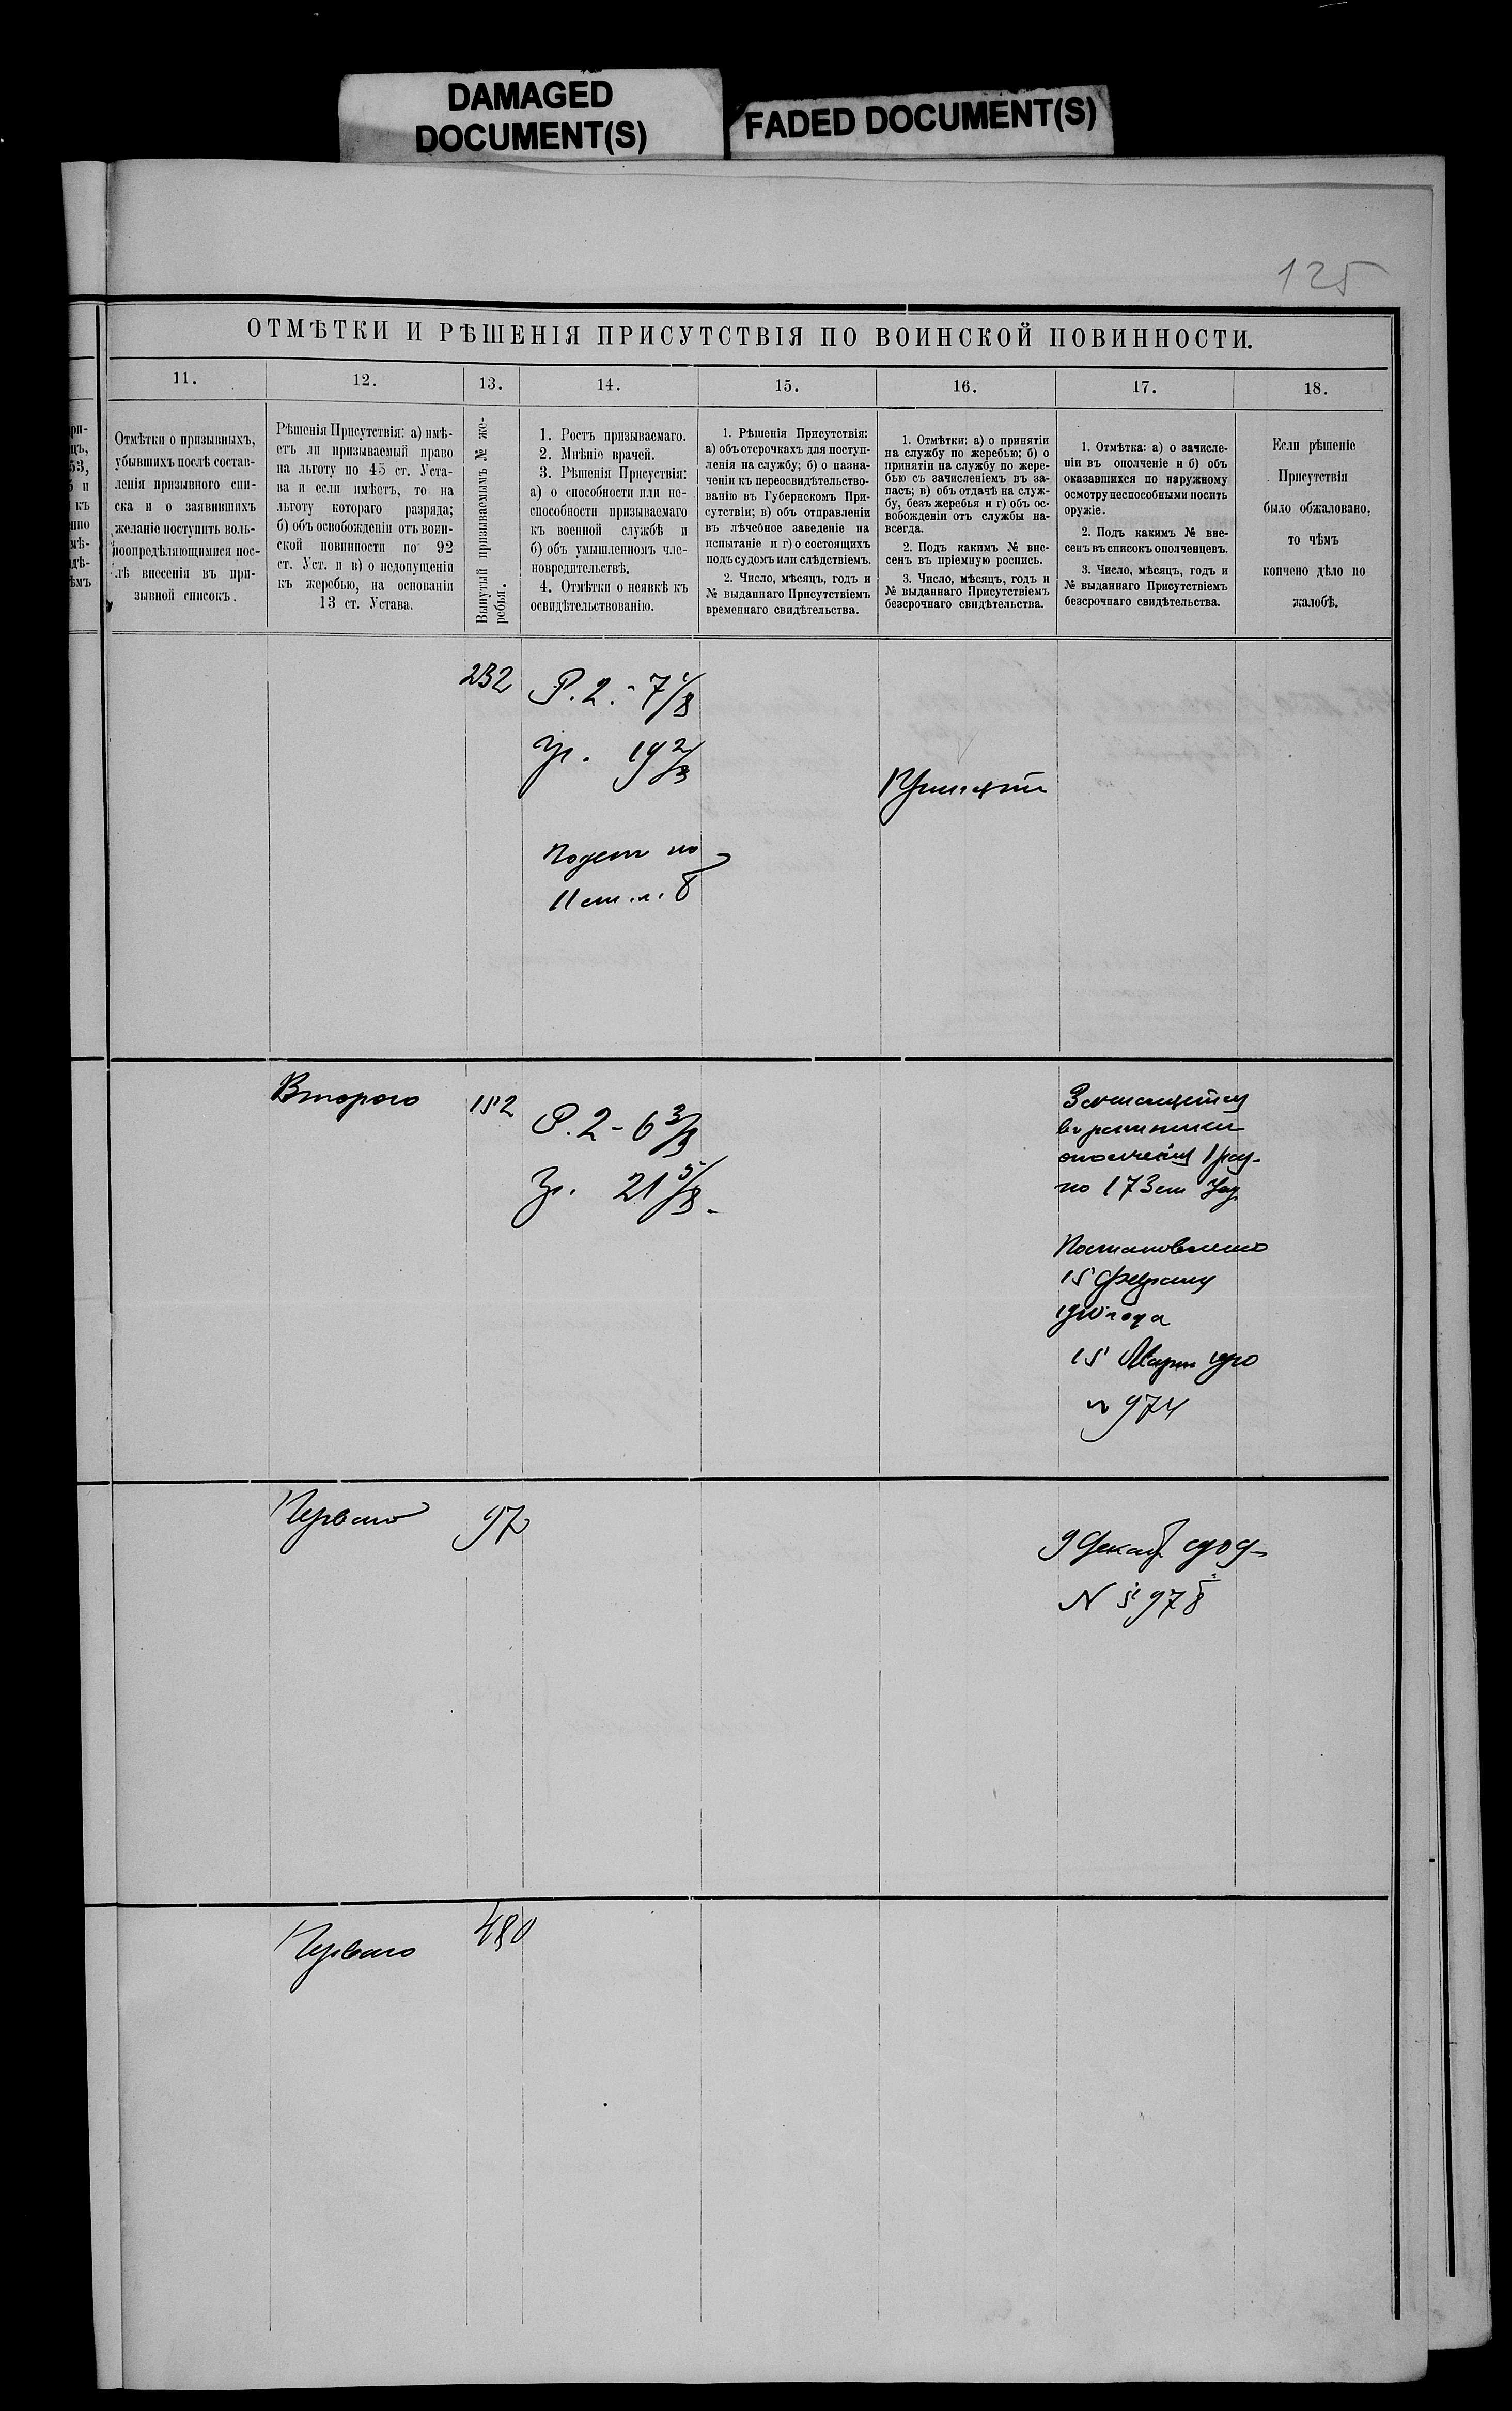 DAMAGED
DOCUMENT(S)
FADED DOCUMENT(S)
125
ОТМѢТКИ И РѢШЕНІЯ ПРИСУТСТВІЯ ПО ВОИНСКОЙ ПОВИННОСТИ.
11.
12.
13.
14.
15.
16.
17.
18.
Отмѣтки о призывныхъ,
убывшихъ послѣ состав-
ленія призывного спи-
ска и о заявившихъ
желаніе поступить воль-
ноопредѣляющимися пос-
лѣ внесенія въ при-
зывной списокъ.
Рѣшенія Присутствія: а) имѣ-
етъ ли призываемый право
на льготу по 45 ст. Уста-
ва и если имѣетъ, то на
льготу котораго разряда;
б) объ освобожденіи отъ воин-
ской повинности по 92
ст. Уст. и в) о недопущеніи
къ жеребью, на основаніи
13 ст. Устава.
Вынутый призываемымъ № же-
ребья.
1. Ростъ призываемаго.
2. Мнѣніе врачей.
3. Рѣшенія Присуствія:
а) о способности или не-
способности призываемаго
къ военной службѣ и
б) объ умышленномъ чле-
новредительствѣ.
4. Отмѣтки о неявкѣ къ
освидѣтельствованію.
1. Рѣшенія Присутствія:
а) объ отсрочкахъ для поступ-
ленія на службу; б) о назна-
ченіи къ переосвидѣтельство-
ванію въ Губернскомъ При-
сутствіи; в) объ отправленіи
въ лѣчебное заведеніе на
испытаніе и г) о состоящихъ
подъ судомъ или слѣдствіемъ.
2. Число, мѣсяцъ, годъ и
№ выданнаго Присутствіемъ
временнаго свидѣтельства.
1. Отмѣтки: а) о принятіи
на службу по жеребью; б) о
принятіи на службу по жере-
бью съ зачисленіемъ въ за-
пасъ; в) объ отдачѣ на служ-
бу, безъ жеребья и г) объ ос-
вобожденіи отъ службы на-
всегда.
2. Подъ какимъ № вне-
сенъ въ пріемную роспись.
3. Число, мѣсяцъ, годъ и
№ выданнаго Присутствіемъ
безсрочнаго свидѣтельства.
1. Отмѣтка: а) о зачисле-
ніи въ ополченіе и б) объ
оказавшихся по наружному
осмотру неспособными носить
оружіе.
2. Подъ какимъ № вне-
сенъ въ списокъ ополченцевъ.
3. Число, мѣсяцъ, годъ и
№ выданнаго Присутствіемъ
безсрочнаго свидѣтельства.
Если рѣшеніе
Присутствія
было обжаловано,
то чѣмъ
кончено дѣло по
жалобѣ.
232
Р. 2. - 7 1/8
Гр. 19 2/8
Годенъ по
11 ст. л. Б
Принятъ
Второго
152
Р. 2 - 6 3/8
Гр. 21 5/8
Зачисляется
въ ратники
ополченія 1 раз.
по 173 ст Уст
Постановлено
15 февраля
1910 года
15 Марта 1910
№ 974
Перваго
97
9 Декаб 1909
N 5978
Перваго
480